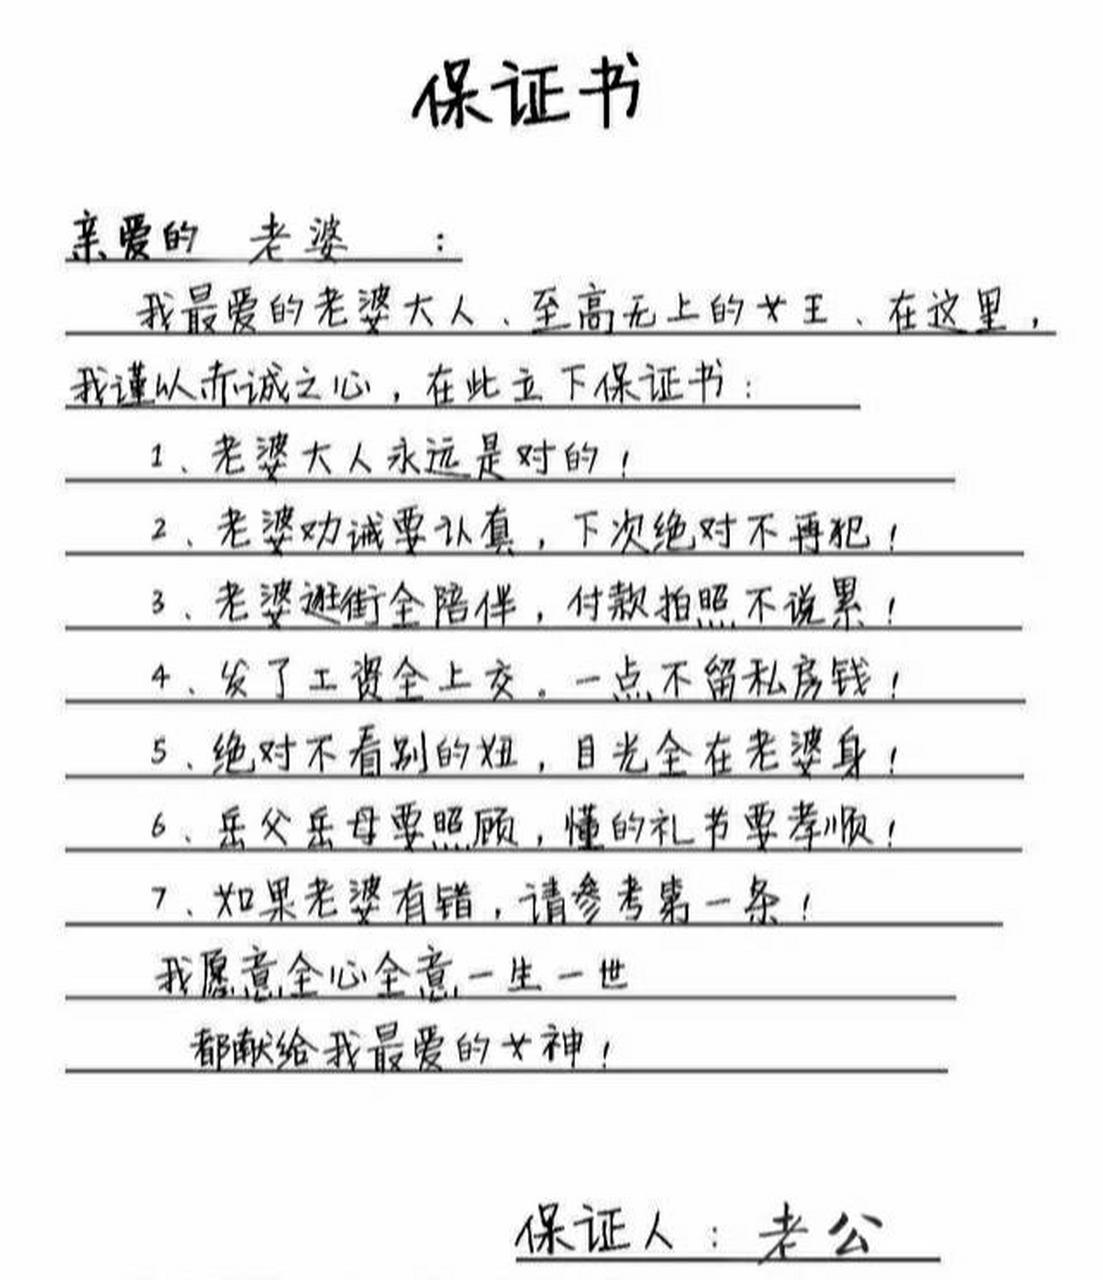 保证书
亲爱的 老婆 ：
我最爱的老婆大人、至高无上的女王、在这里，
我谨以赤诚之心，在此立下保证书：
1、老婆大人永远是对的！
2、老婆劝诫要认真，下次绝对不再犯！
3、老婆逛街全陪伴，付款拍照不说累！
4、发了工资全上交。一点不留私房钱！
5、绝对不看别的妞，目光全在老婆身！
6、岳父岳母要照顾，懂的礼节要孝顺！
7、如果老婆有错，请参考第一条！
我愿意全心全意一生一世
都献给我最爱的女神！
保证人：老公